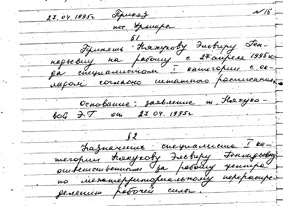 27.04.1995г. Приказ №15
пгт. Урмары
§1
Принять Няхукову Эльвиру Ген-
надьевну на работу с 27 апреля 1995 го-
да специалистом I категории с ок-
ладом согласно штатного расписания
Основание: заявление т. Няхуко-
вой Э.Г от 27.04.1995г.
§2
Назначить специалиста I ка-
тегории Няхукову Эльвиру Геннадьевну
ответственным за работу центра
по межтерриториальному перерасп-
делению рабочей силы.